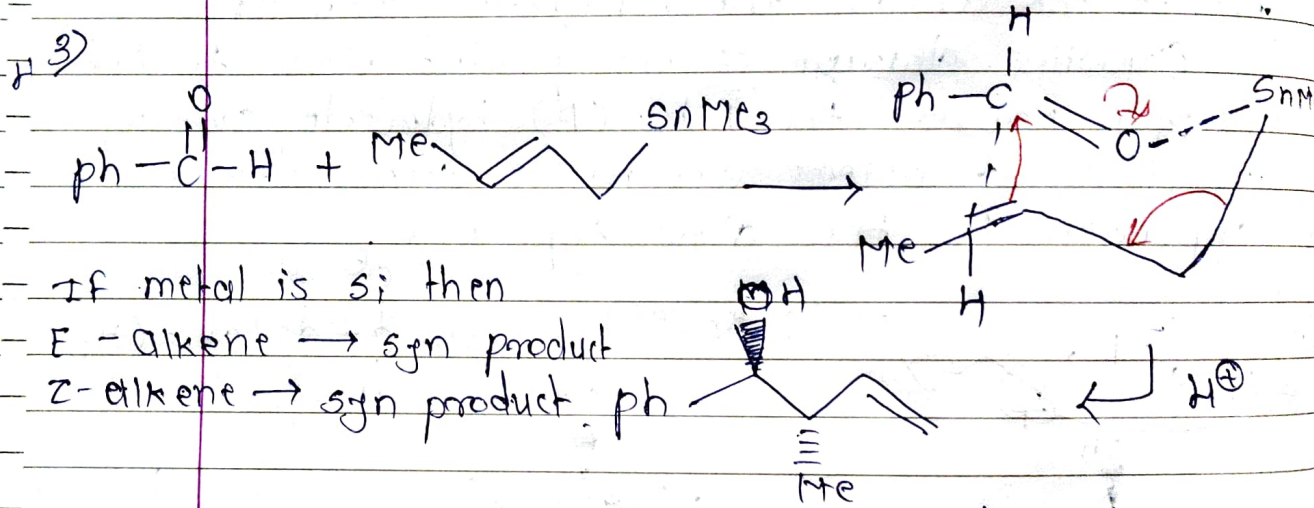 3)
O
ph - C - H + Me SnMe3
H
ph - C O SnM
Me H
If metal is Si then
E - alkene → syn product
Z - alkene → syn product
OH
ph Me
H⊕